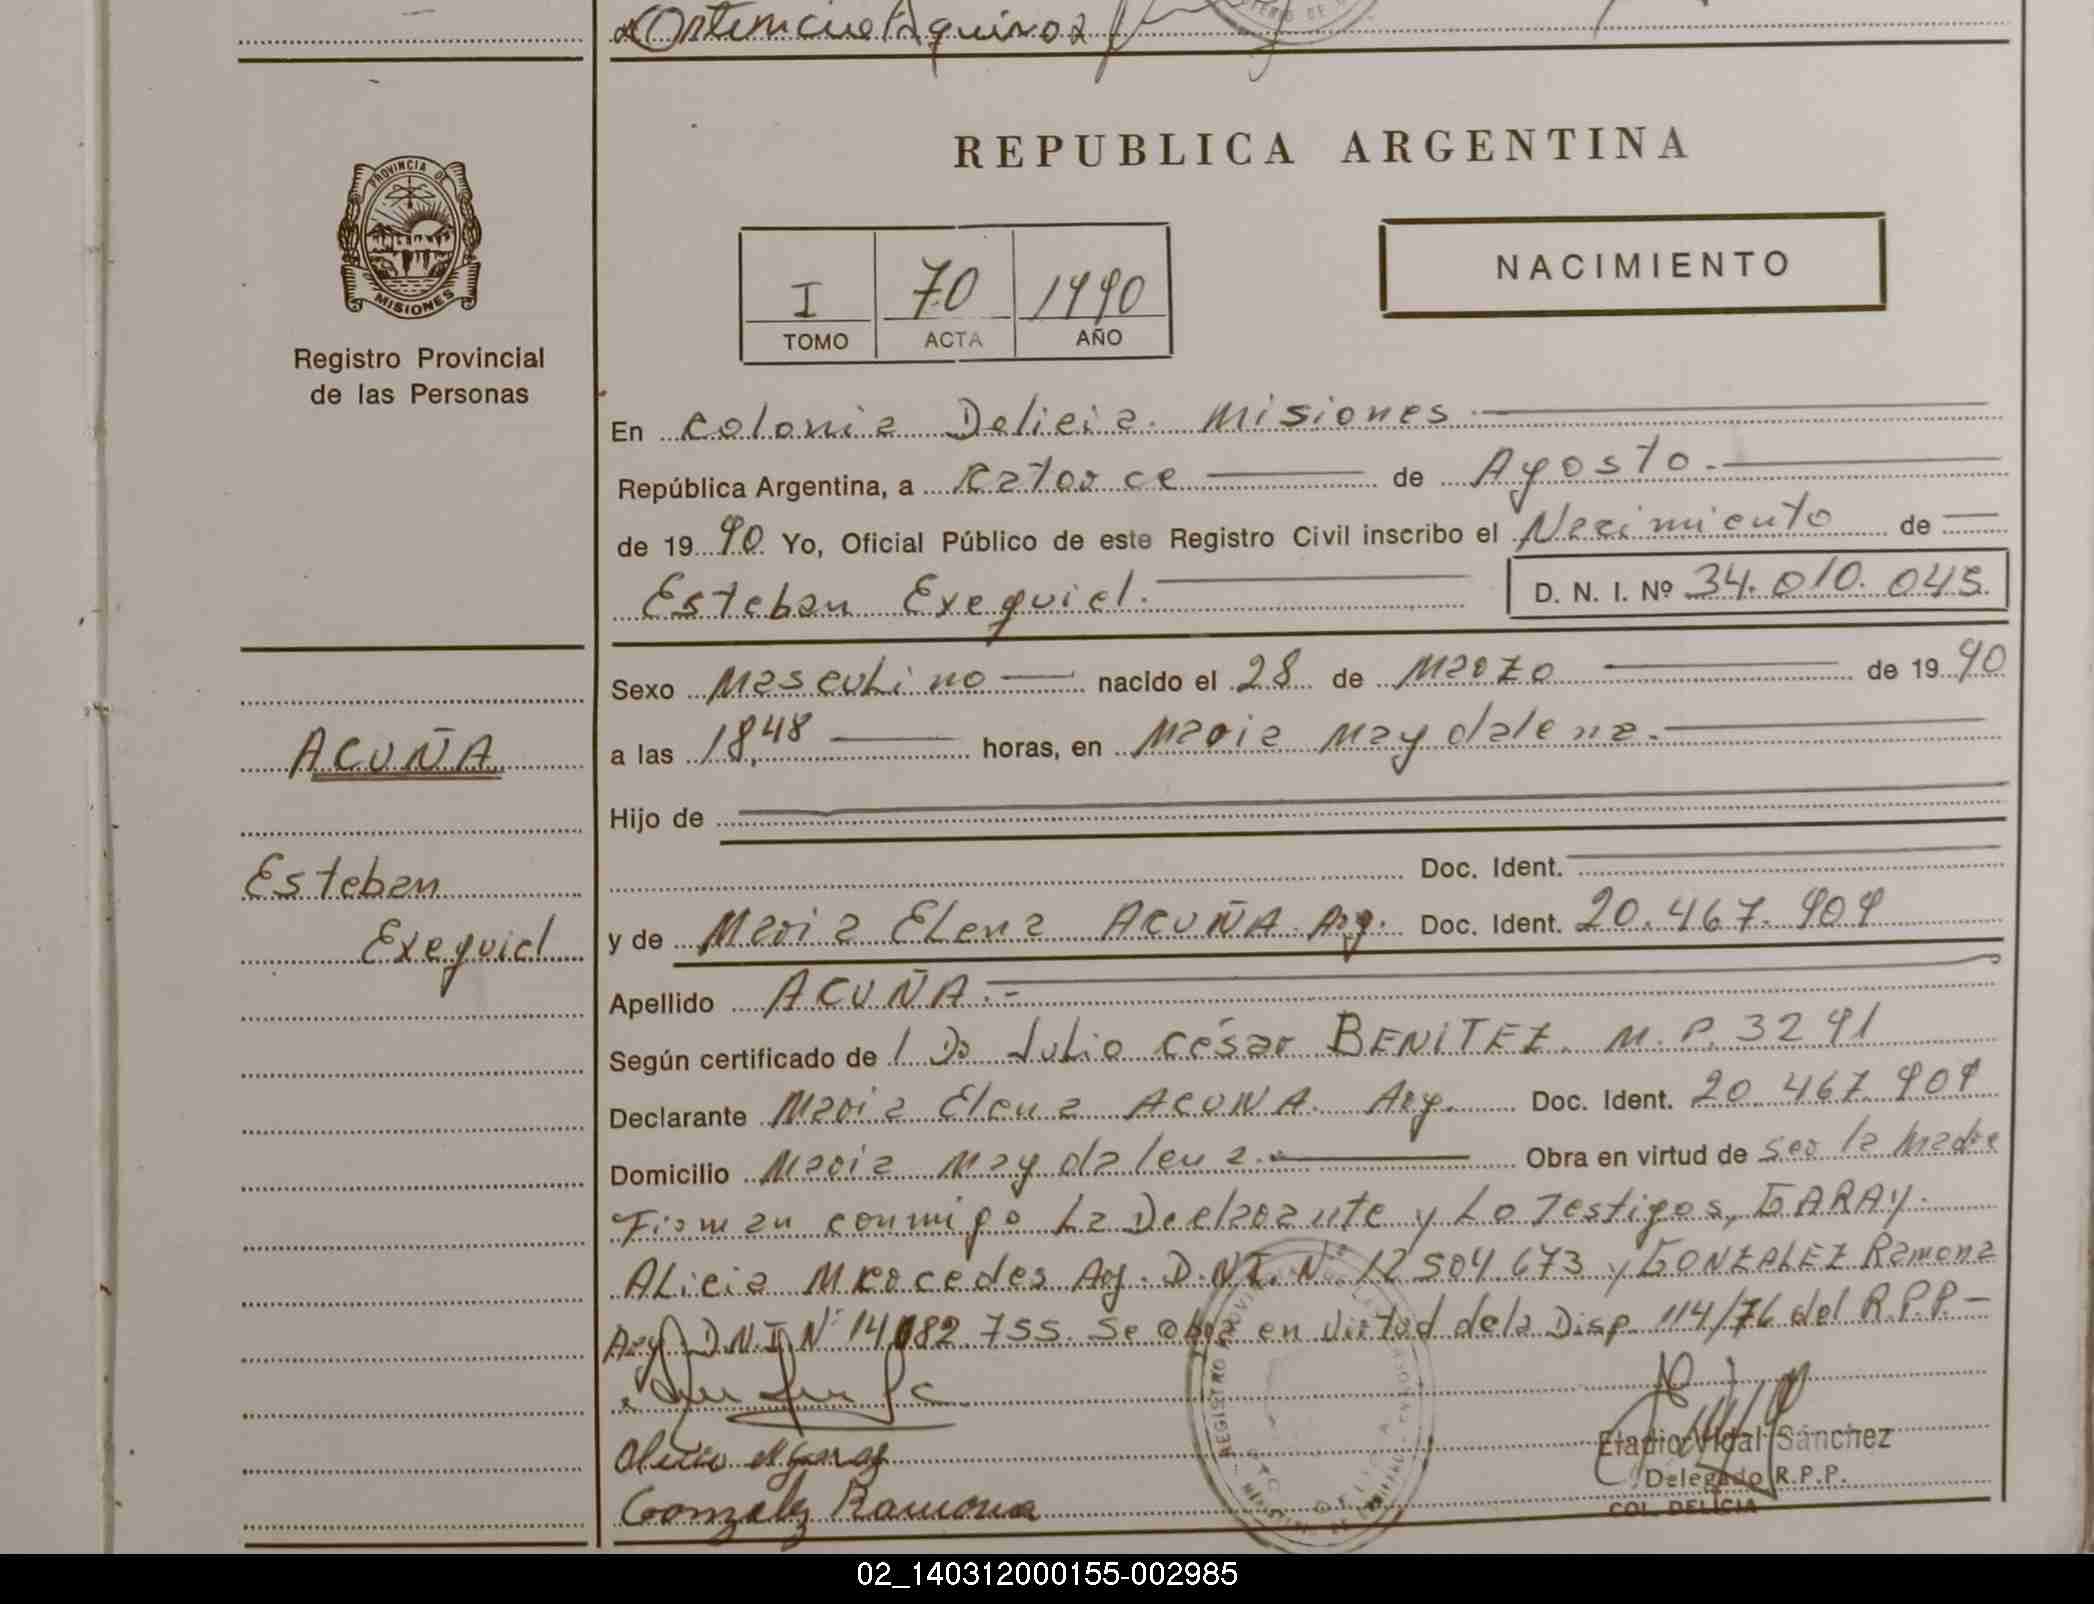 Ortencia Aquino
REPUBLICA ARGENTINA
PROVINCIA DE
MISIONES
Registro Provincial
de las Personas
I 70 1990
TOMO ACTA AÑO
NACIMIENTO
En Colonia Delicia. Misiones
República Argentina, a Catorce de Agosto.-
de 1990 Yo, Oficial Público de este Registro Civil inscribo el Nacimiento de
Esteban Exequiel. D. N. I. Nº 34.010.045
Sexo Masculino nacido el 28 de Marzo de 1990
a las 18,48 horas, en Maria Magdalena.-
Hijo de
Doc. Ident.
y de Maria Elena ACUÑA. Arg. Doc. Ident. 20.467.909
Apellido ACUÑA.-
Según certificado de Dr Julio César BENITEZ. M.P. 3291
Declarante Maria Elena ACUÑA. Arg. Doc. Ident. 20.467.909
Domicilio Maria Magdalena.- Obra en virtud de ser la Madre
Firman conmigo La Declarante y Lo Testigos, GARAY
ALicia Mercedes Arg. D.N.I. Nº 12 504 673 y GONZALEZ Ramona
Arg. D.N.I Nº 14.082.755. Se obra en virtud de la Disp. 114/76 del R.P.P.-
Gonzalez Ramona
Eladio Vidal Sánchez
Delegado R.P.P.
COL. DELICIA
ACUÑA
Esteban
Exequiel
02_140312000155-002985